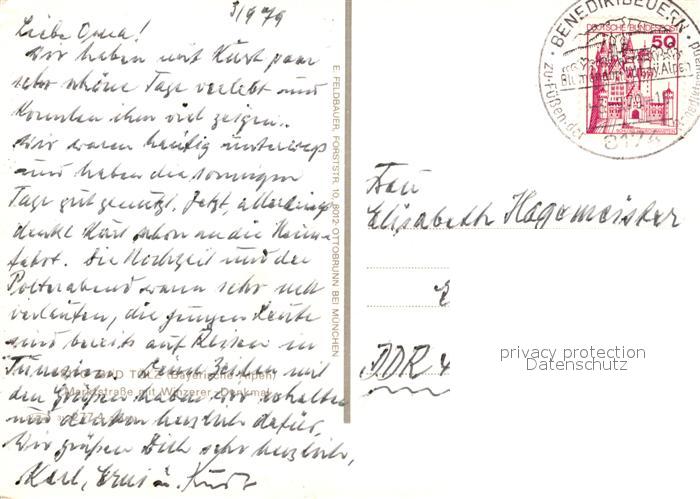 3/9 79
Liebe Oma!
Wir haben mit Kurt paar
sehr schöne Tage verlebt und
konnten ihm viel zeigen.
Wir waren häufig unterwegs
und haben die sonnigen
Tage gut genutzt. Jetzt, allerdings
denkt Kurt schon an die Heim-
fahrt. Die Hochzeit und der
Polterabend waren sehr nett
verlaufen, die jungen Leute
sind bereits auf Reisen in
Tunesien. Deine Zeilen mit
den Grüßen haben wir erhalten
und danken herzlich dafür.
Wir grüßen Dich sehr herzlich,
Karl, Erni u. Kurt
BAD TÖLZ (Bayerische Alpen)
Marktstraße mit Winzerer-Denkmal
E. FELDBAUER, FORSTSTR. 10, 8012 OTTOBRUNN BEI MÜNCHEN
BENEDIKTBEUERN
zu Füßen der
8174
DEUTSCHE BUNDESPOST
50
Frau
Elisabeth Hagemeister
DDR 4
privacy protection
Datenschutz